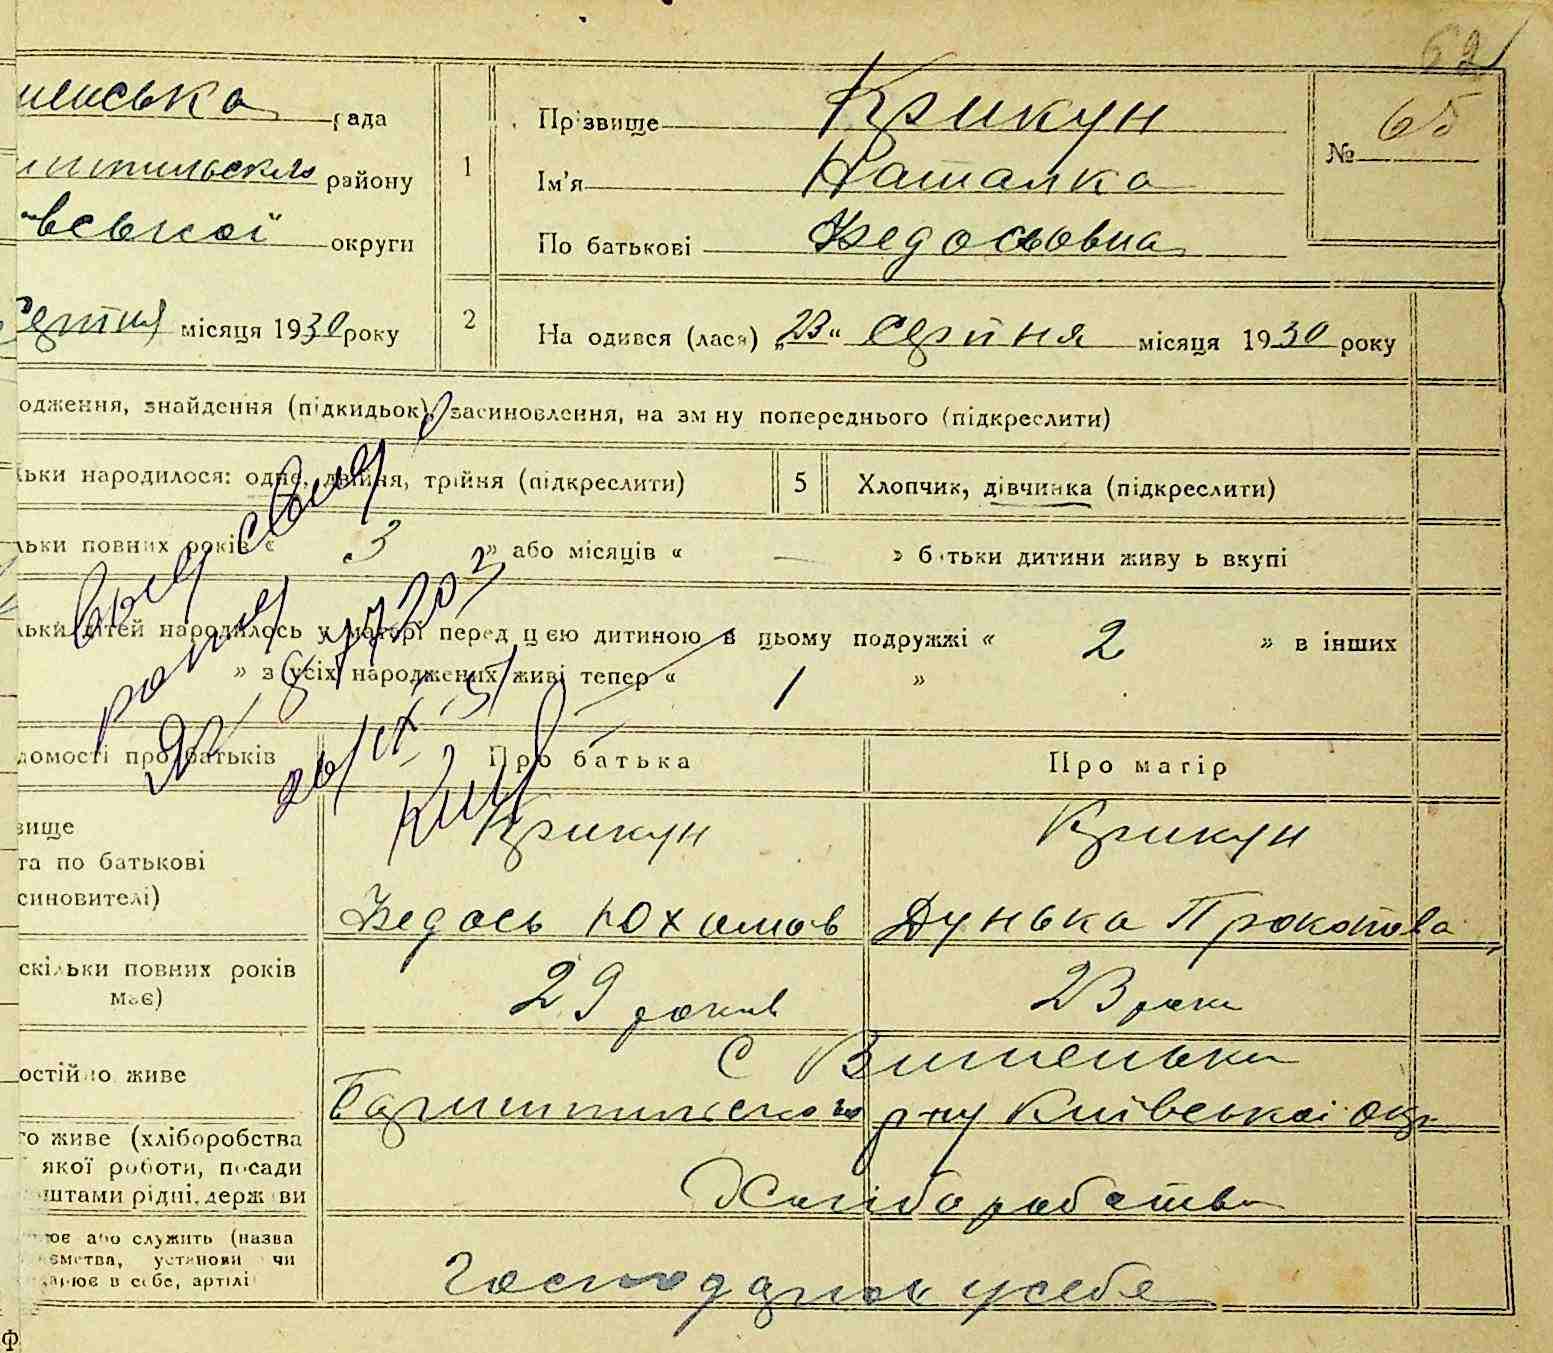 62
енська рада
район
вської округи
Серпня місяця 1930 року
1
Прізвище Крикун
Ім'я Наталка
По батькові Хведосьовна
№ 65
2
На одився (лася) „23“ Серпня місяця 1930 року
одження, знайдення (підкидьок), засиновлення, на зм ну попереднього (підкреслити)
льки народилося: одне, двійня, трійня (підкреслити)
5
Хлопчик, дівчинка (підкреслити)
льки повних років « 3 » або місяців « — » б тьки дитини живу ь вкупі
льки дітей народилось у матері перед цією дитиною в цьому подружжі « 2 » в інших
» з усіх народжених живі тепер « 1 »
26/IX 51
домості про батьків
Про батька
Про матір
вище
та по батькові
синовителі)
Крикун
Хведось Юхимов
Крикун
Дунька Прокопова
скільки повних років
має)
29 років
23 роки
остійно живе
с Вишеньки
Баришпильського р-ну Київської окр
го живе (хліборобства
якої роботи, посади
штами рідні, держ ви
Хліборобство
ює або служить (назва
ємства, установи чи
цює в себе, артілі
Господарює у себе
Ф